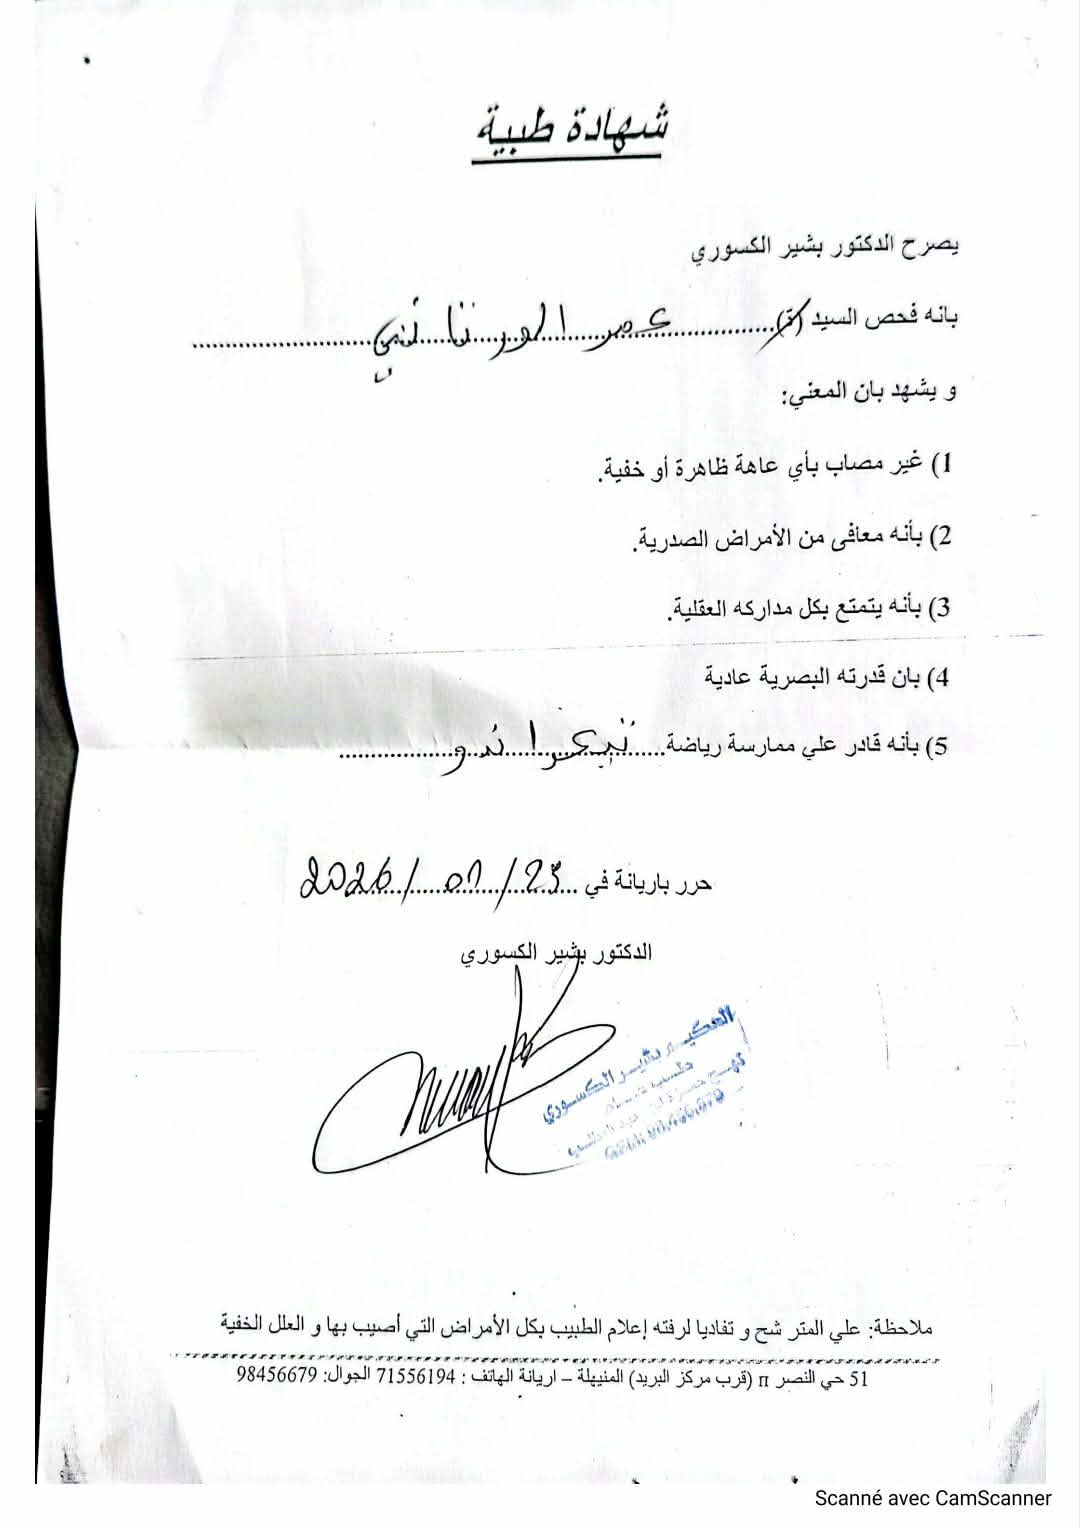 شهادة طبية
يصرح الدكتور بشير الكسوري
بانه فحص السيد (ة)
و يشهد بان المعني:
1) غير مصاب بأي عاهة ظاهرة أو خفية.
2) بأنه معافى من الأمراض الصدرية.
3) بأنه يتمتع بكل مداركه العقلية.
4) بان قدرته البصرية عادية
5) بأنه قادر علي ممارسة رياضة
حرر باريانة في 2026/01/25
الدكتور بشير الكسوري
الحكيم بشير الكسوري
ملاحظة: علي المتر شح و تفاديا لرفته إعلام الطبيب بكل الأمراض التي أصيب بها و العلل الخفية
51 حي النصر п (قرب مركز البريد) المنيهلة – اريانة الهاتف : 71556194 الجوال: 98456679
Scanné avec CamScanner